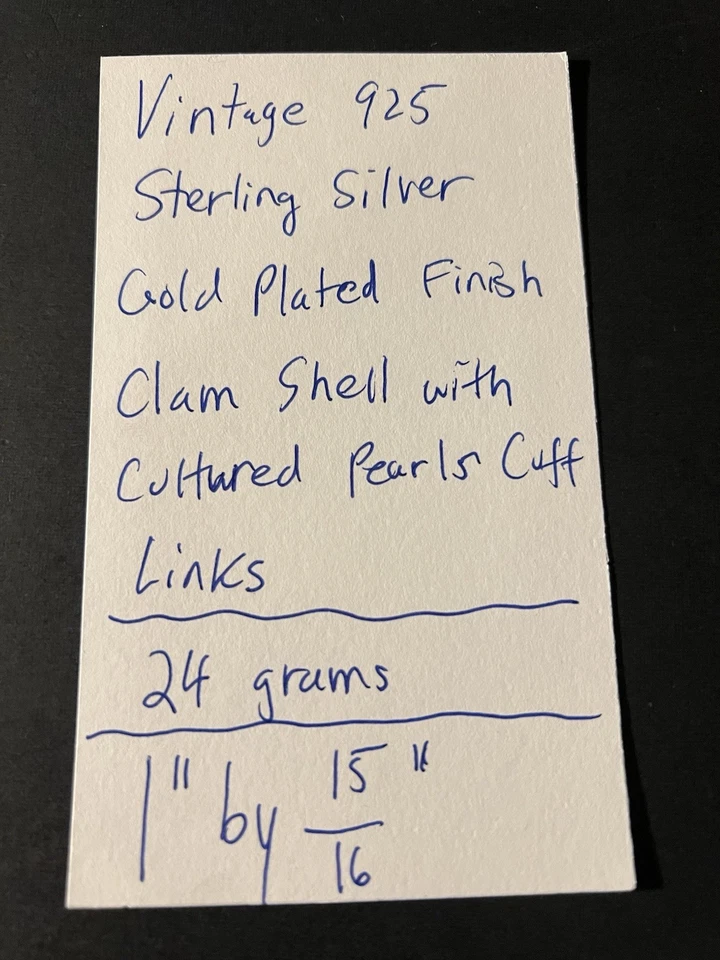 Vintage 925
Sterling Silver
Gold Plated Finish
Clam Shell with
Cultured Pearls Cuff
Links
24 grams
1" by 15/16"